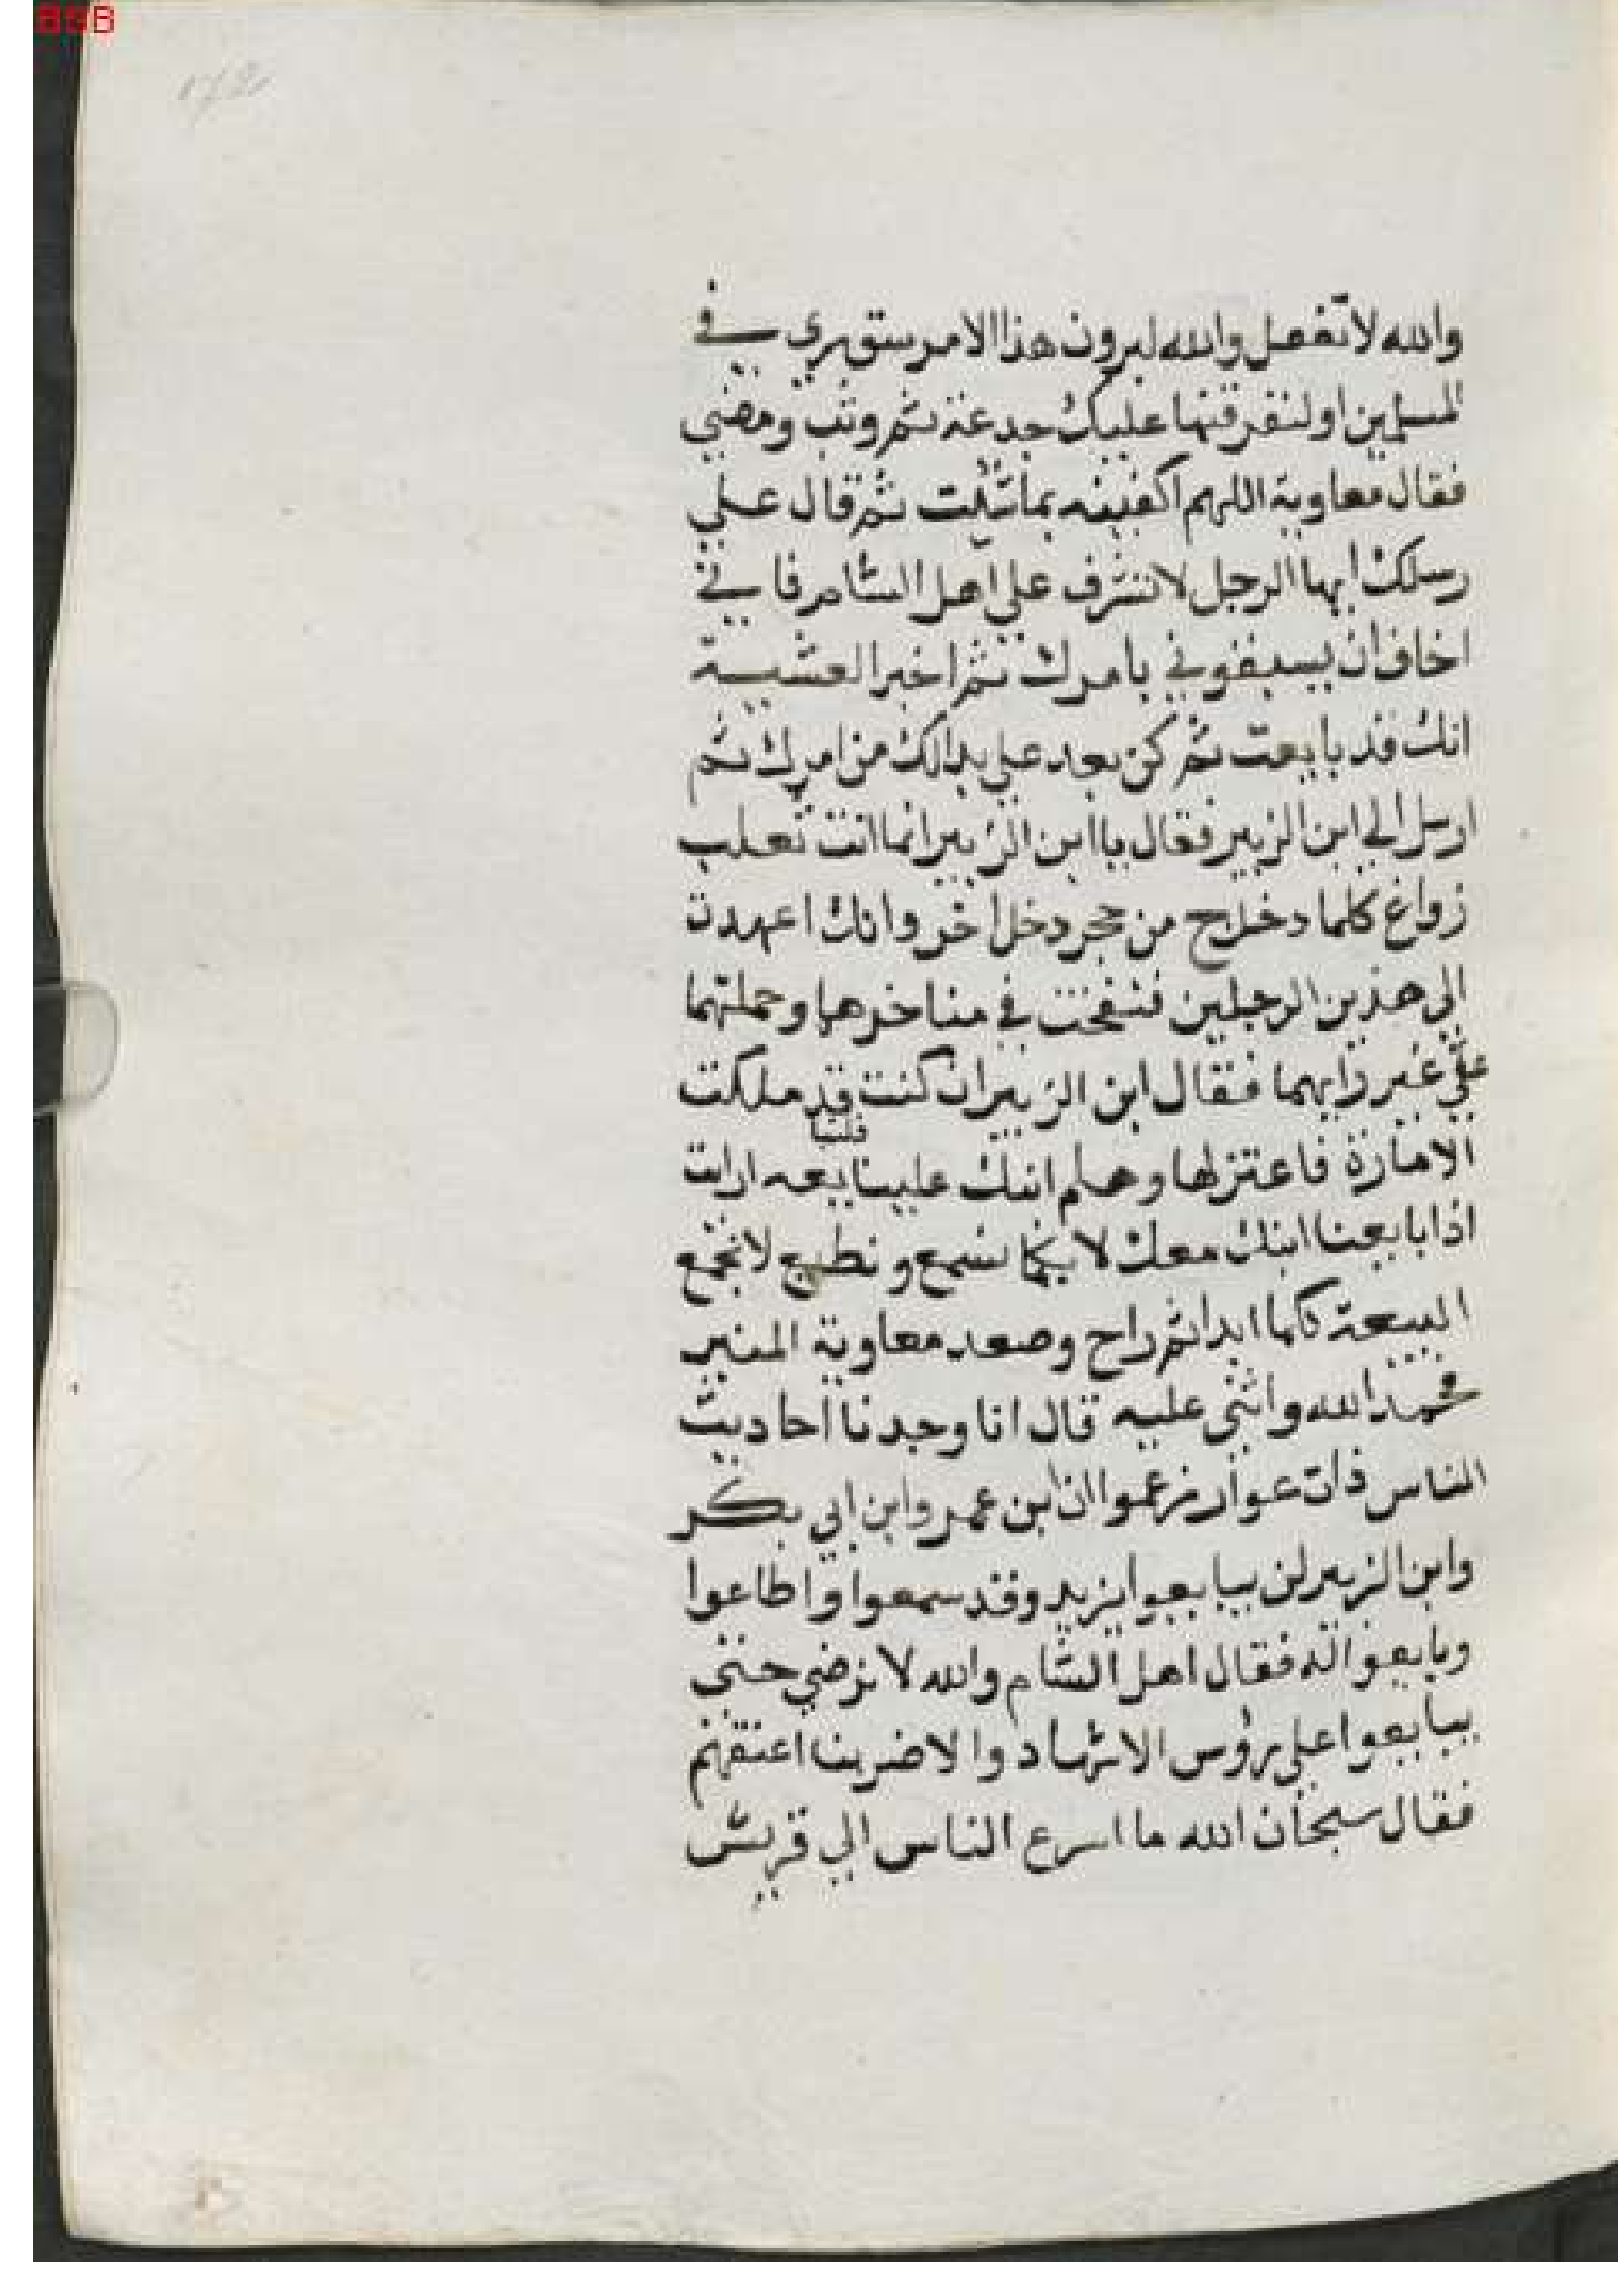 BSB
172
والله لا تفعل والله ليرون هذا الامر ستوري في
المسلمين او لنفرقنها عليك جدعة ثم وثب ومضي
فقال معاوية اللهم اكفينه بما شئت ثم قال علي
رسلك ايها الرجل لا تشرف علي اهل الشام فاني
اخاف ان يسبقوني بامرك ثم اخبر العشية
انك قد بايعت ثم كن بعد علي بدالك من امرك ثم
ارسل الي ابن الزبير فقال يا ابن الزبير انما انت تعلب
زواغ كلما دخل ج من حجر دخل اخر وانك اعهدت
الي هذين الرجلين فنفخت في مناخرهما وحملتهما
علي غير رايهما فقال ابن الزبير ان كنت قد ملكت
الامارة فاعتزلها وهلم ابنك علينا فلنبايعه ارات
اذا بايعنا ابنك معك لايكما نسمع ونطيع لا نجمع
البيعة كلما ابدا ثم راح وصعد معاوية المنبر
فحمد الله واثني عليه قال انا وجدنا احاديث
الناس ذات عوار زعموا ان ابن عمر وابن ابي بكر
وابن الزبير لن يبايعوا يزيد وقد سمعوا واطاعوا
وبايعوا له فقال اهل الشام والله لا نرضي حتي
يبايعوا علي رؤس الاشهاد والا ضربنا اعنقهم
فقال سبحان الله ما اسرع الناس الي قريش